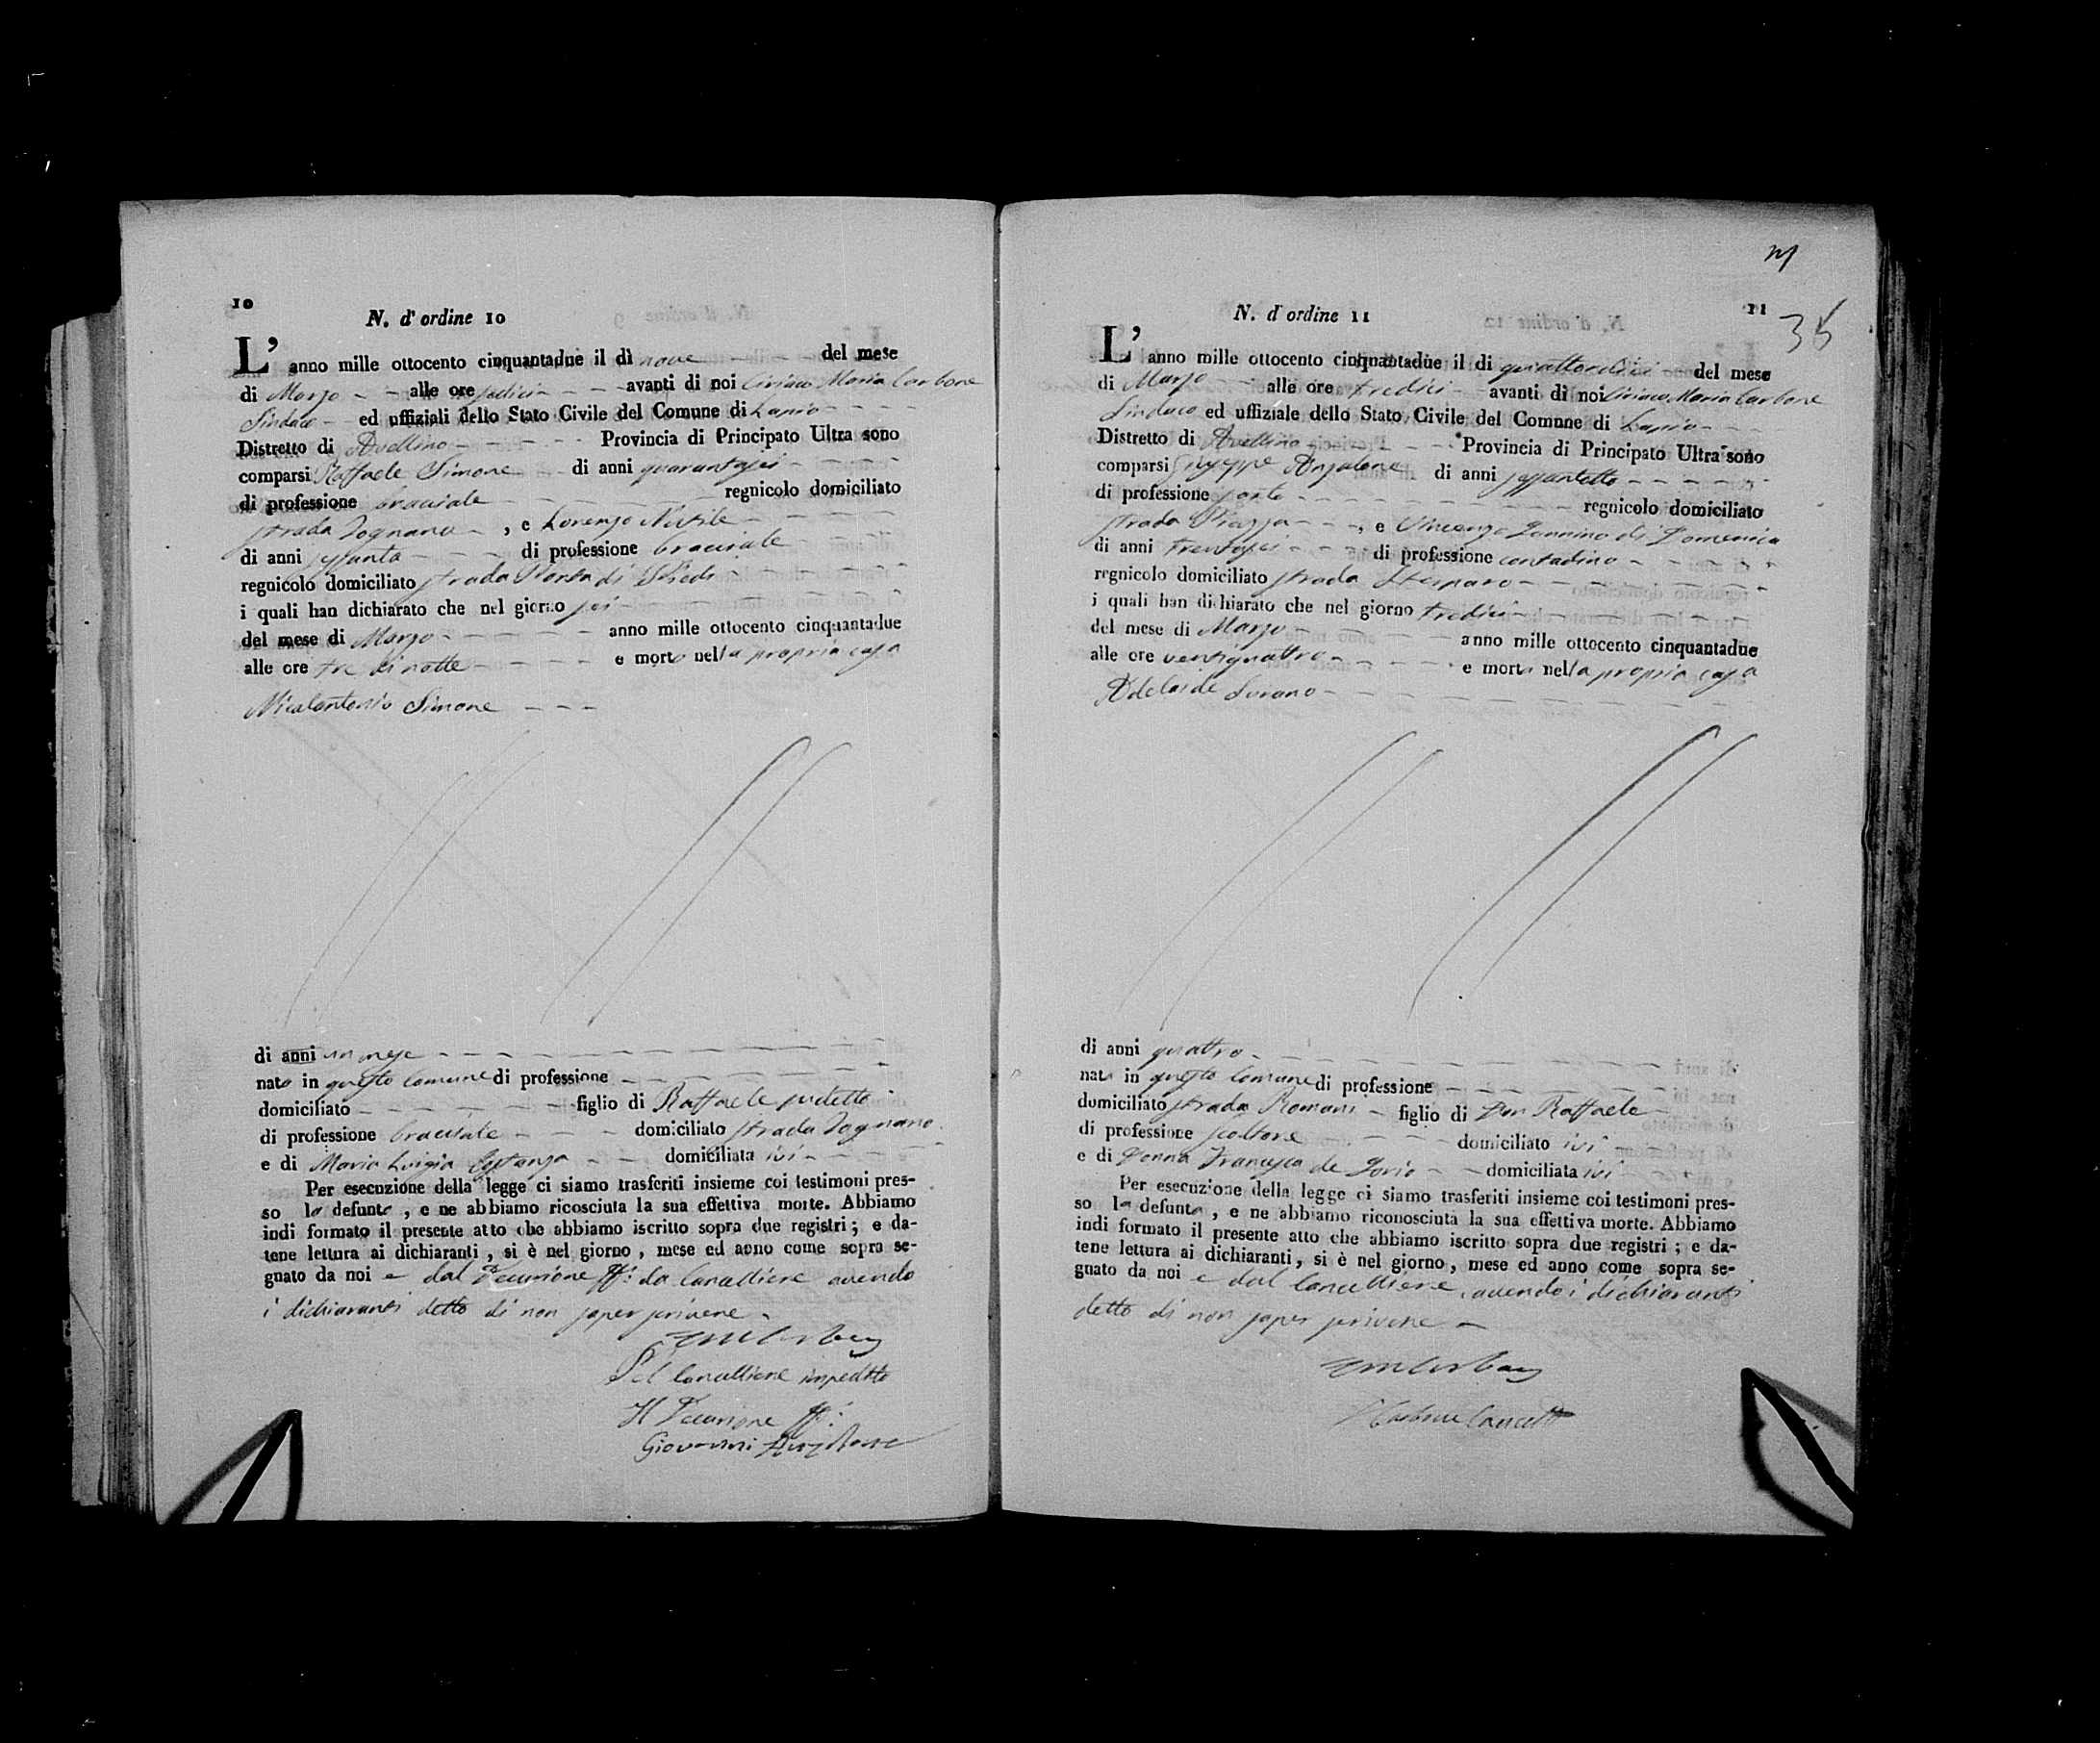 10
N. d' ordine 10
L' anno mille ottocento cinquantadue il dì nove del mese
di Marzo alle ore sedici avanti di noi Ciriaco Maria Carbone
Sindaco ed uffiziali dello Stato Civile del Comune di Lapio
Distretto di Avellino Provincia di Principato Ultra sono
comparsi Raffaele Simone di anni quarantasei
di professione bracciale regnicolo domiciliato
strada Tognano, e Lorenzo
di anni sessanta di professione bracciale
regnicolo domiciliato strada Porta di
i quali han dichiarato che nel giorno sei
del mese di Marzo anno mille ottocento cinquantadue
alle ore tre di notte e morto nella propria casa
Nicolantonio Simone
di anni un mese
nato in questo Comune di professione
domiciliato figlio di Raffaele sudetto
di professione bracciale domiciliato strada Tognano
e di Maria Luigia Costanza domiciliata ivi
Per esecuzione della legge ci siamo trasferiti insieme coi testimoni pres-
so lo defunto, e ne abbiamo ricosciuta la sua effettiva morte. Abbiamo
indi formato il presente atto che abbiamo iscritto sopra due registri; e da-
tene lettura ai dichiaranti, si è nel giorno, mese ed anno come sopra se-
gnato da noi e dal Decurione ff: da Cancelliere avendo
i dichiaranti detto di non saper scrivere
Pel Cancelliere impedito
Il Decurione ff:
Giovanni Anzalone
11
35
N. d' ordine 11
L' anno mille ottocento cinquantadue il di quattordici del mese
di Marzo alle ore tredici avanti di noi Ciriaco Maria Carbone
Sindaco ed uffiziale dello Stato Civile del Comune di Lapio
Distretto di Avellino Provincia di Principato Ultra sono
comparsi Giuseppe Anzalone di anni sessantotto
di professione sarto regnicolo domiciliato
strada Piazza, e Vincenzo Iannino di Domenico
di anni trentasei di professione contadino
regnicolo domiciliato strada
i quali han dichiarato che nel giorno tredici
del mese di Marzo anno mille ottocento cinquantadue
alle ore ventiquattro e morta nella propria casa
Adelaide Surano
di anni quattro
nata in questo Comune di professione
domiciliato strada Romani figlio di Don Raffaele
di professione domiciliato ivi
e di Donna Francesca de Iorio domiciliata ivi
Per esecuzione della legge ci siamo trasferiti insieme coi testimoni pres-
so la defunta, e ne abbiamo riconosciuta la sua effettiva morte. Abbiamo
indi formato il presente atto che abbiamo iscritto sopra due registri; e da-
tene lettura ai dichiaranti, si è nel giorno, mese ed anno come sopra se-
gnato da noi e dal Cancelliere, avendo i dichiaranti
detto di non saper scrivere